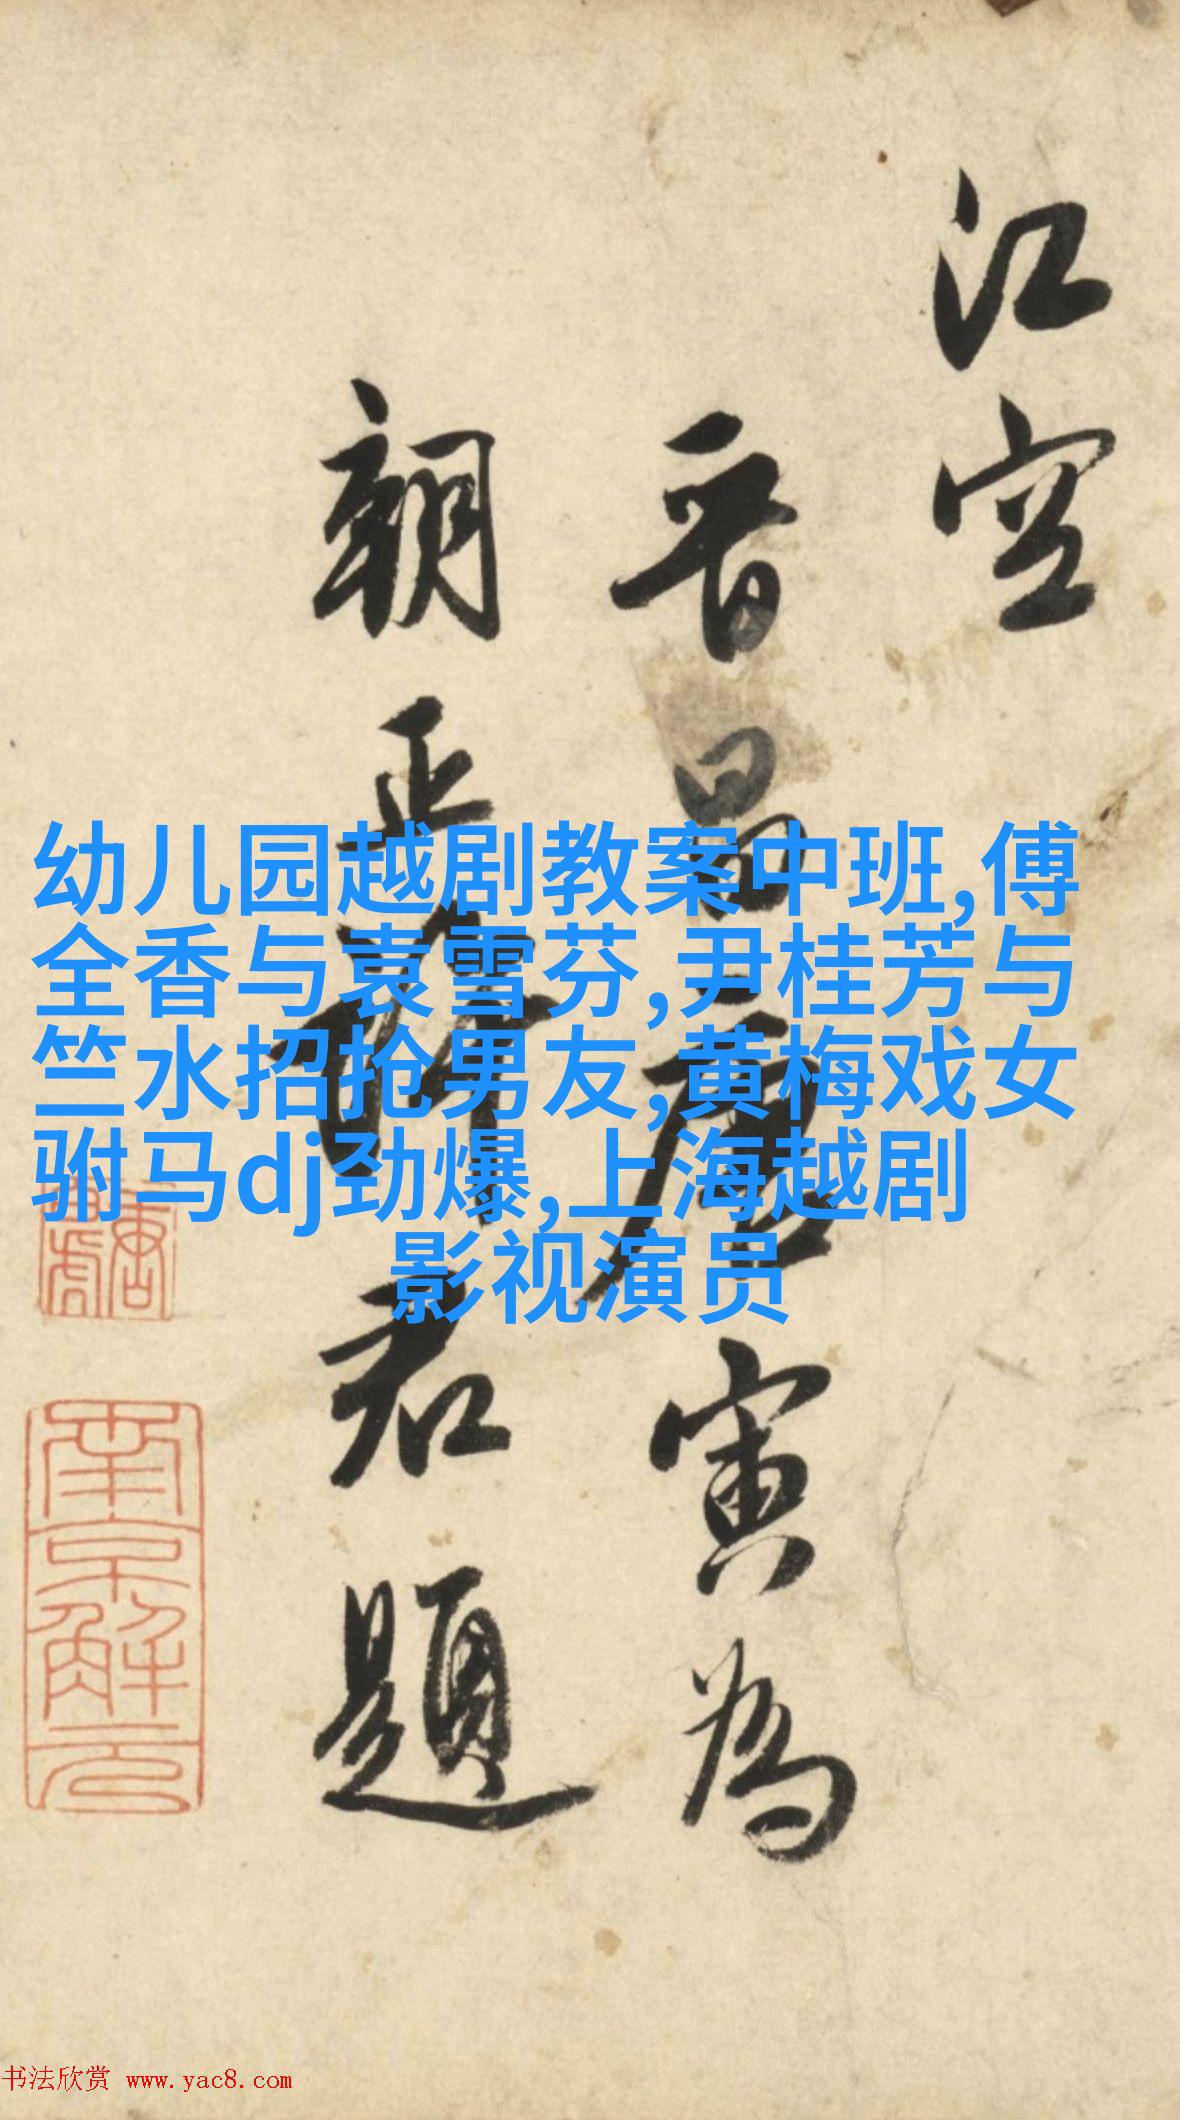 江空
晉昌唐寅為
朝正君題
南京解元
幼儿园越剧教案中班,傅
全香与袁雪芬,尹桂芳与
竺水招抢男友,黄梅戏女
驸马dj劲爆,上海越剧
影视演员
书法欣赏 www.yac8.com